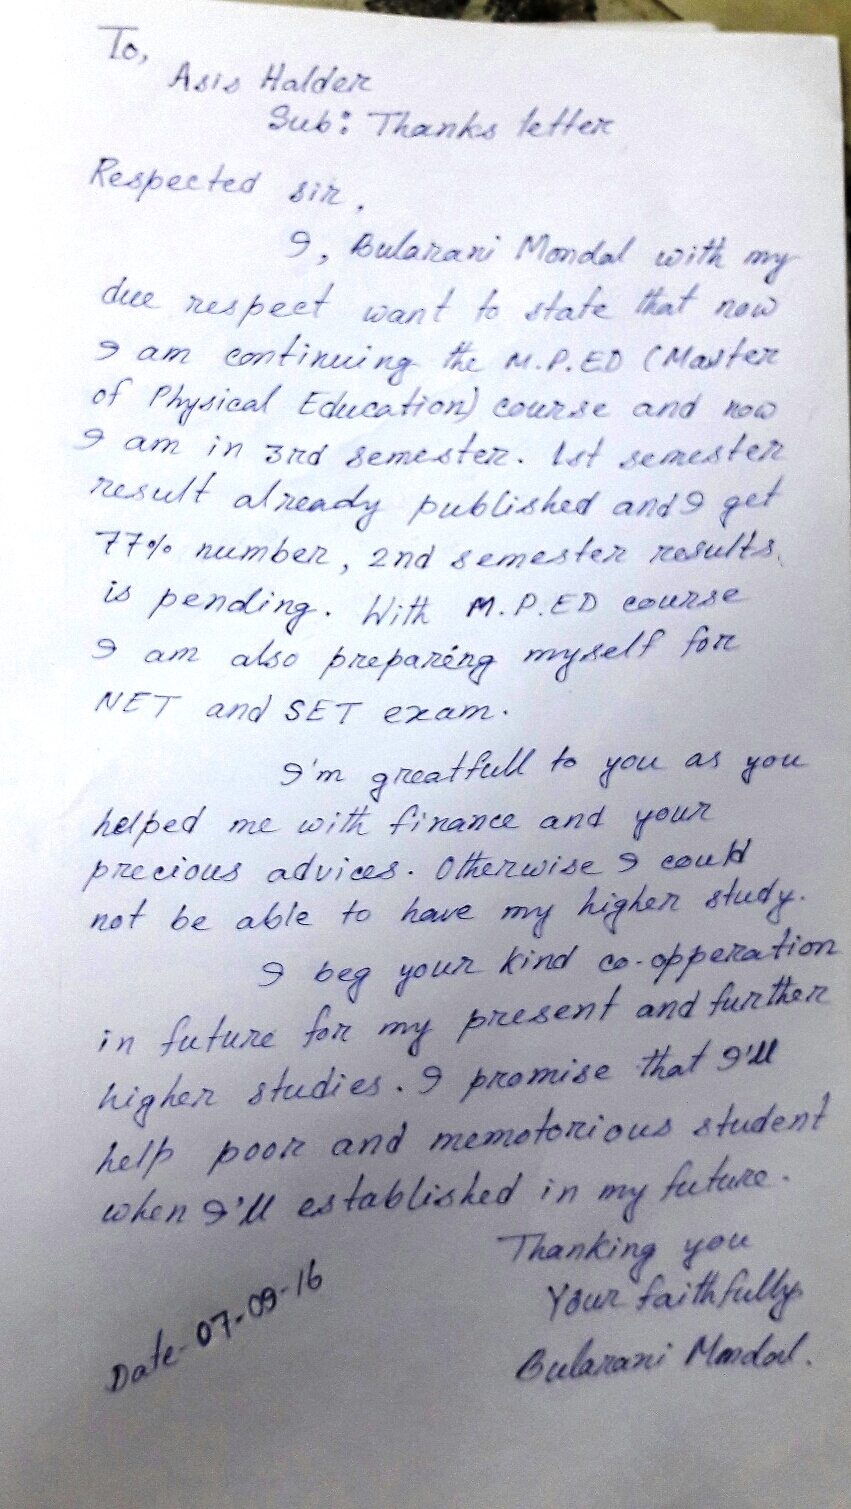 To,
Asis Halder
Sub: Thanks letter
Respected sir,
I, Bularani Mondal with my
due respect want to state that now
I am continuing the M.P.ED (Master
of Physical Education) course and now
I am in 3rd semester. 1st semester
result already published and I get
77% number, 2nd semester results
is pending. With M.P.ED course
I am also preparing myself for
NET and SET exam.
I'm greatfull to you as you
helped me with finance and your
precious advices. Otherwise I could
not be able to have my higher study.
I beg your kind co-opperation
in future for my present and further
higher studies. I promise that I'll
help poor and memotorious student
when I'll established in my future.
Thanking you
Your faithfully
Bularani Mondal.
Date-07-09-16